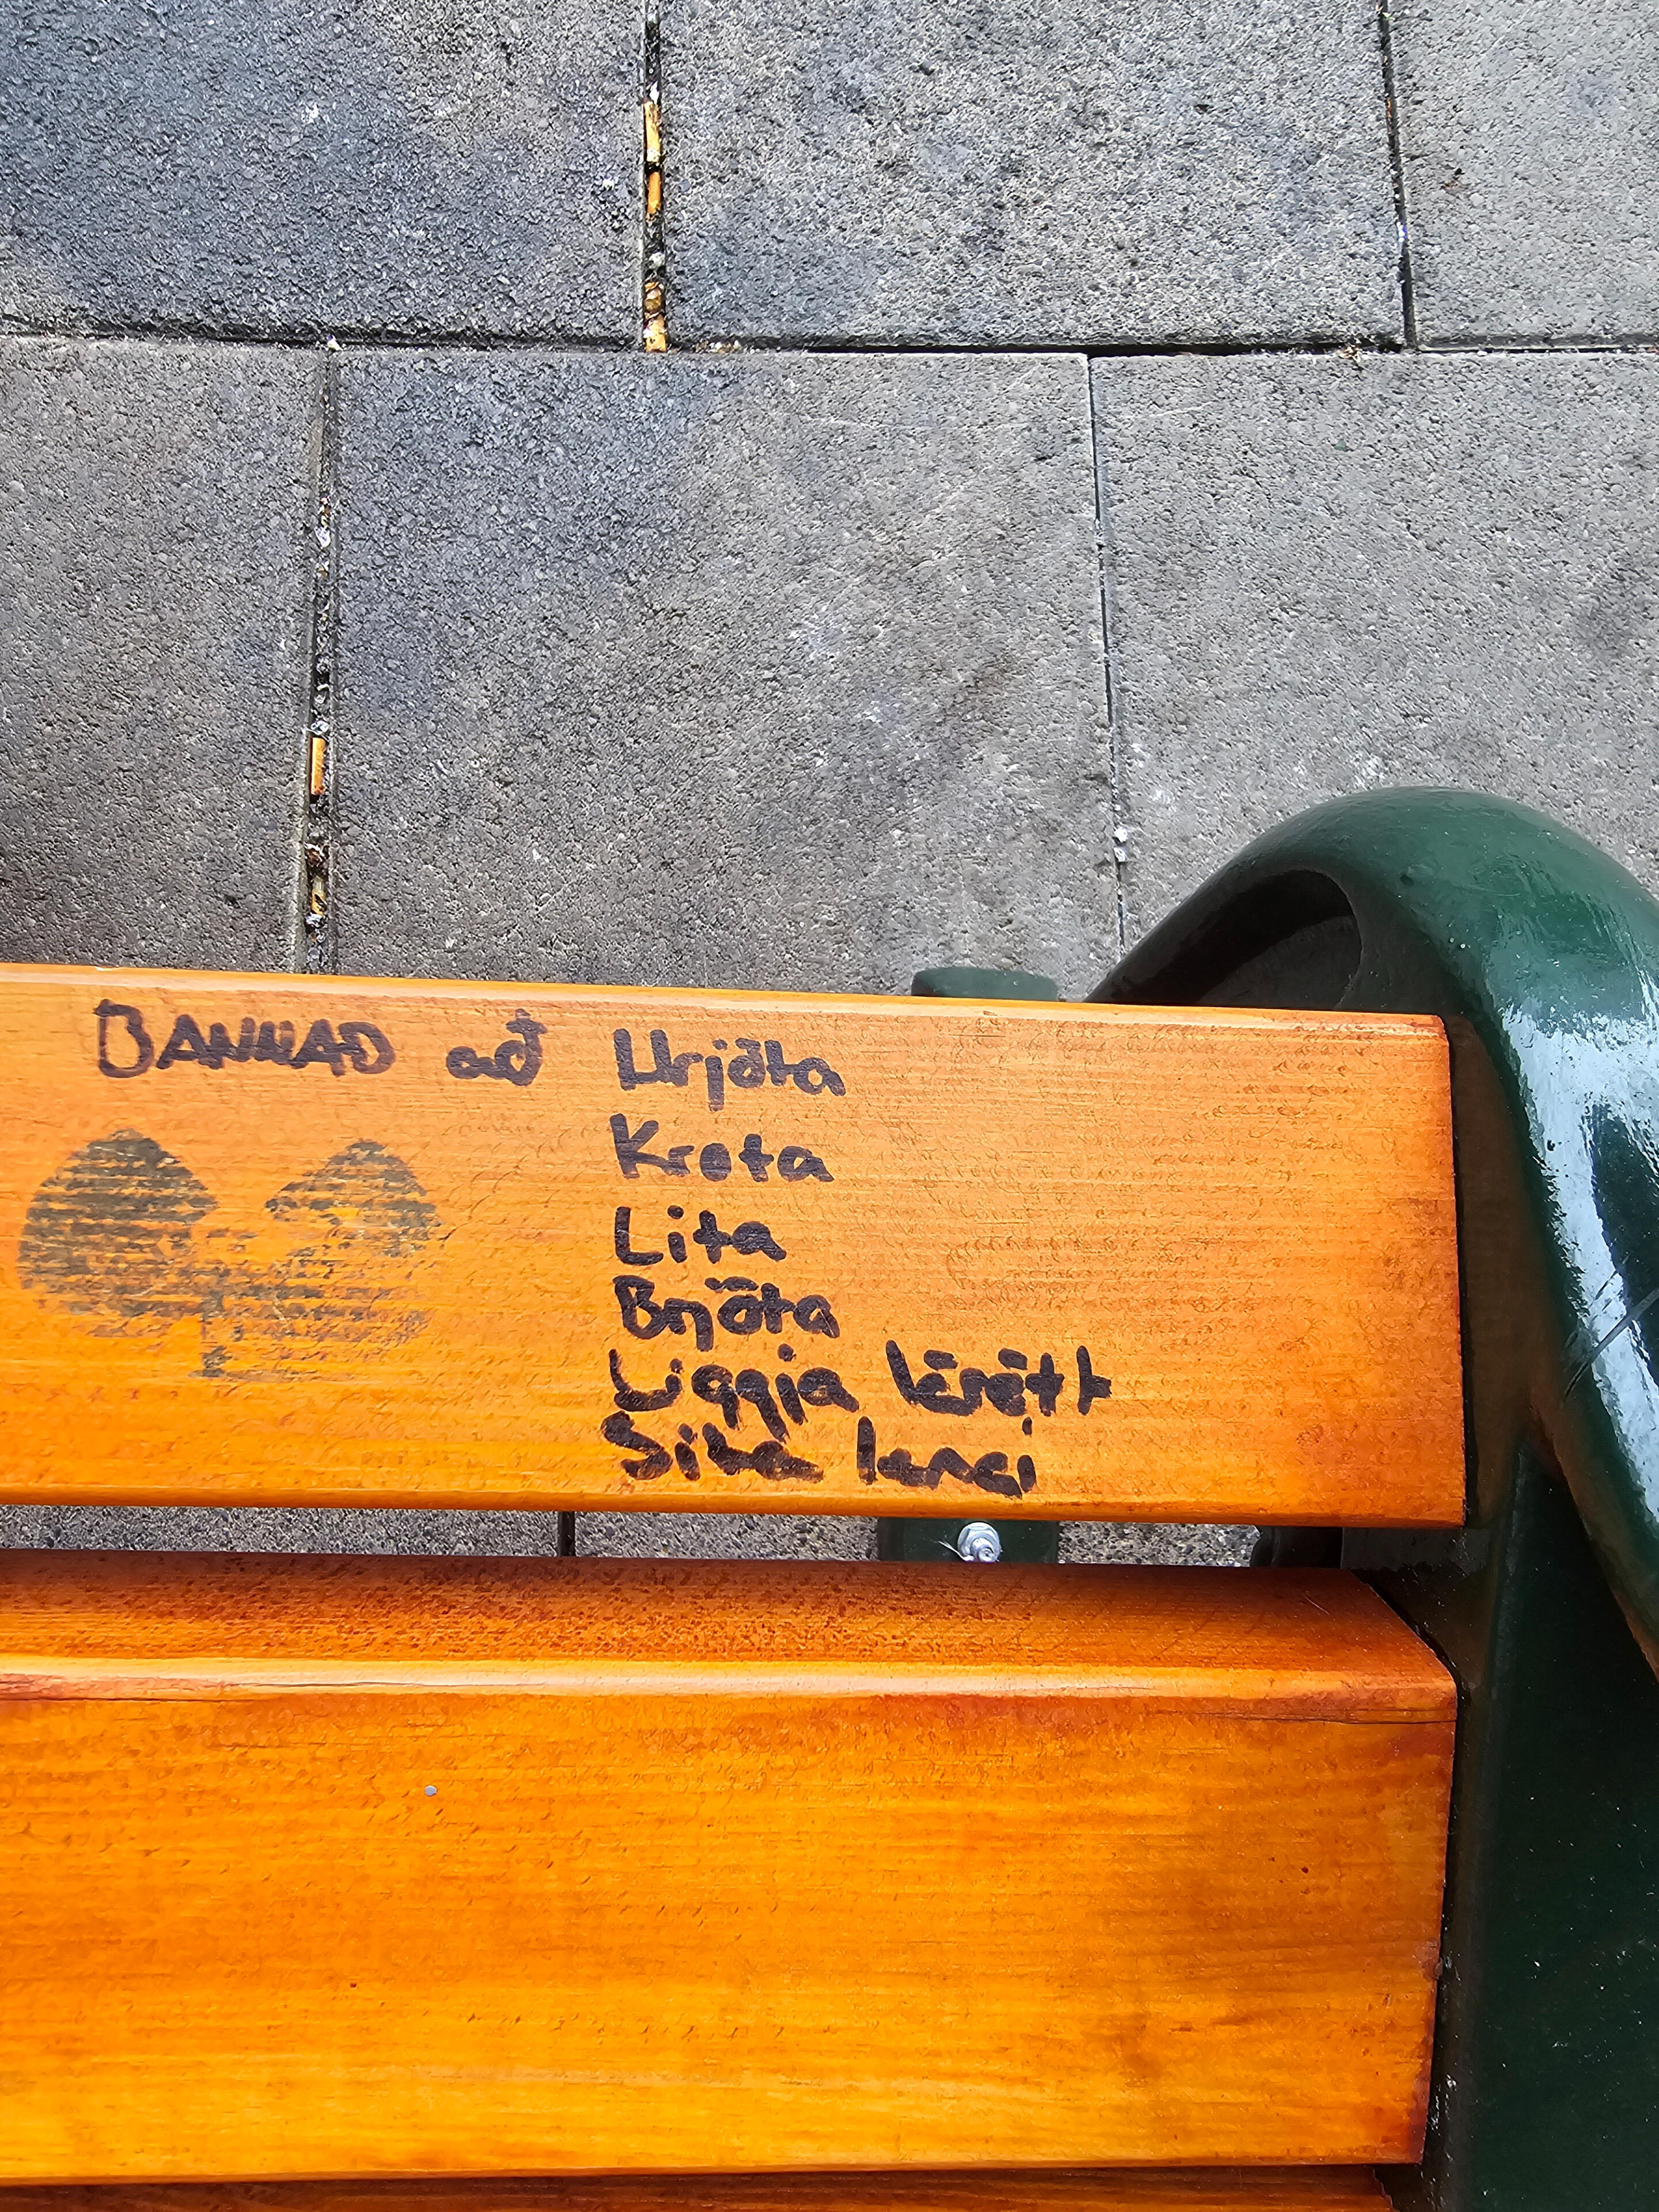 BANNAÐ að Hrjóta
Krota
Lita
Brjóta
Liggja lárétt
Sitja lengi